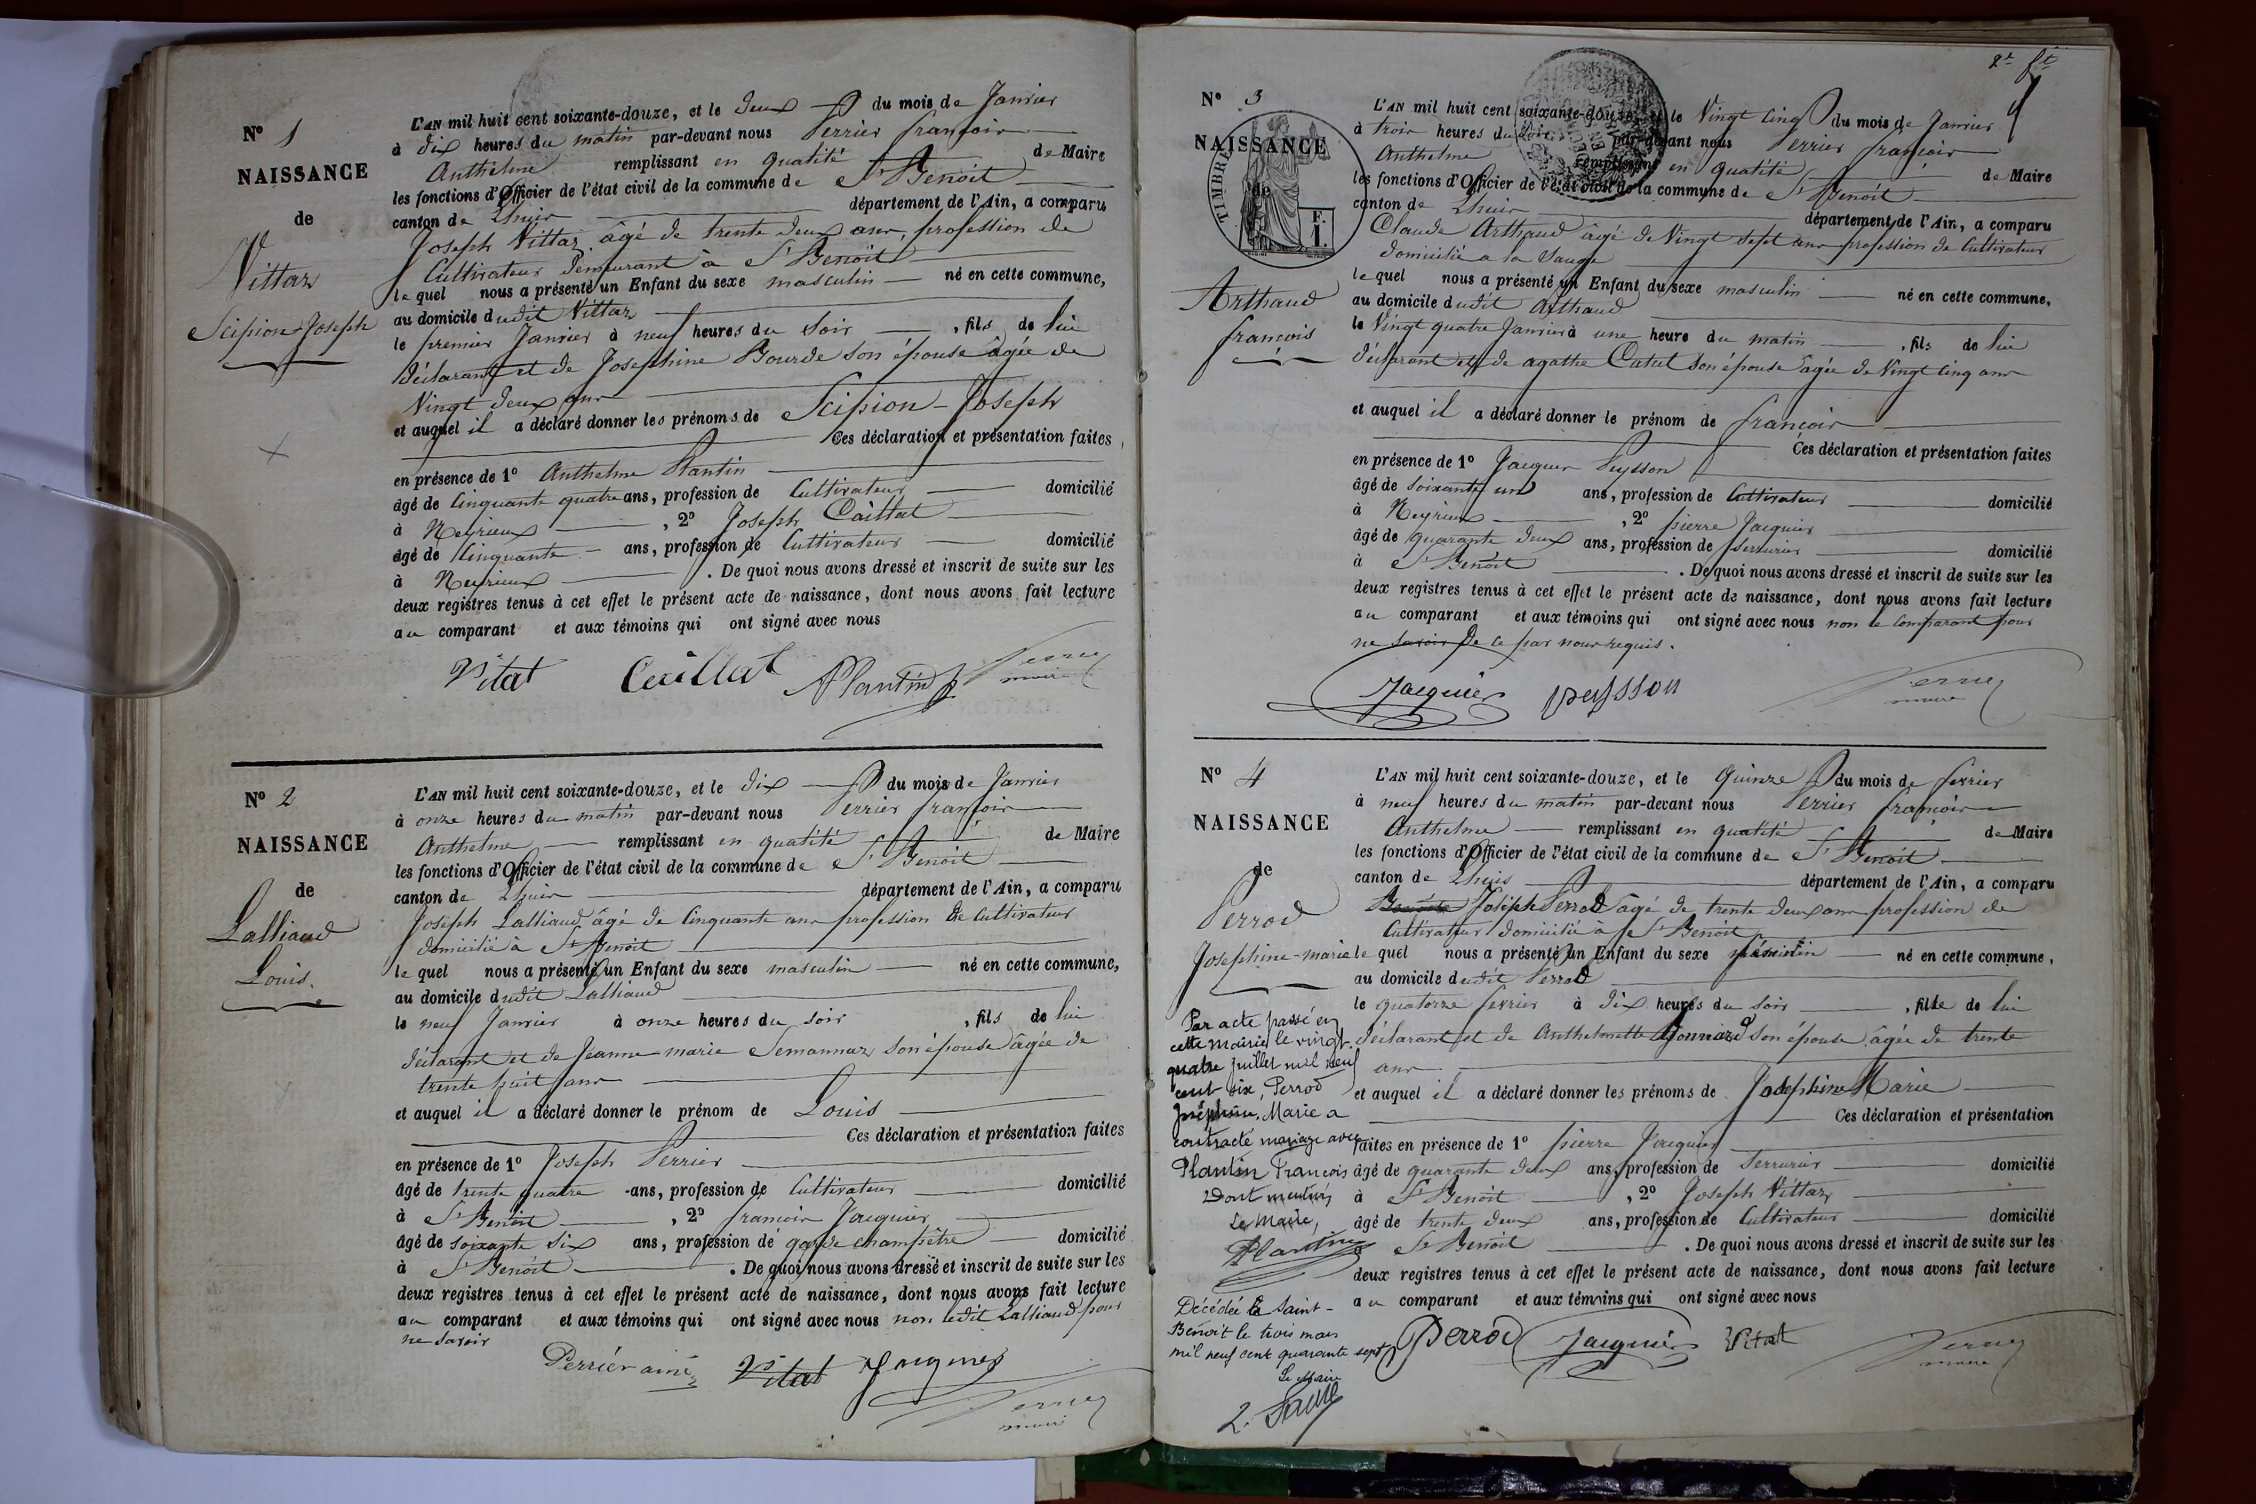 Nº 1
NAISSANCE
de
Vittaz
Scipion Joseph
L'AN mil huit cent soixante-douze, et le deux du mois de Janvier
à dix heures du matin par-devant nous Perrier françois
Anthelme remplissant en qualité de Maire
les fonctions d'Officier de l'état civil de la commune de St Benoit
canton de Lhuis département de l'Ain, a comparu
Joseph Vittaz âgé de trente deux ans, profession de
Cultivateur Demeurant à St Benoit
le quel nous a présenté un Enfant du sexe masculin né en cette commune,
au domicile dudit Vittaz
le premier Janvier à neuf heures du soir, fils de lui
déclarant et de Josephine Bourde son épouse âgée de
Vingt deux ans
et auquel il a déclaré donner les prénoms de Scipion-Joseph
Ces déclaration et présentation faites,
en présence de 1º Anthelme Plantin
âgé de Cinquante quatre ans, profession de Cultivateur domicilié
à Neyrieux, 2º Joseph Caillat
âgé de Cinquante ans, profession de Cultivateur domicilié
à Neyrieux. De quoi nous avons dressé et inscrit de suite sur les
deux registres tenus à cet effet le présent acte de naissance, dont nous avons fait lecture
au comparant et aux témoins qui ont signé avec nous
Vitat Caillat Plantin
maire
Nº 2
NAISSANCE
de
Lalliaud
Louis.
L'AN mil huit cent soixante-douze, et le dix du mois de Janvier
à onze heures du matin par-devant nous Perrier françois
Anthelme remplissant en qualité de Maire
les fonctions d'Officier de l'état civil de la commune de St Benoit
canton de Lhuis département de l'Ain, a comparu
Joseph Lalliaud âgé de Cinquante ans profession de Cultivateur
domicilié à St Benoit
le quel nous a présenté un Enfant du sexe masculin né en cette commune,
au domicile dudit Lalliaud
le neuf Janvier à onze heures du soir, fils de lui
déclarant et de Jeanne-marie Semannaz son épouse âgée de
trente huit ans
et auquel il a déclaré donner le prénom de Louis
Ces déclaration et présentation faites
en présence de 1º Joseph Perrier
âgé de trente quatre -ans, profession de Cultivateur domicilié
à St Benoit, 2º françois Jacquier
âgé de soixante six ans, profession de garde champêtre domicilié
à St Benoit. De quoi nous avons dressé et inscrit de suite sur les
deux registres tenus à cet effet le présent acte de naissance, dont nous avons fait lecture
au comparant et aux témoins qui ont signé avec nous non ledit Lalliaud pour
ne savoir
Perrier ainé Vitat Jacquier
maire
2e ft
Nº 3
NAISSANCE
de
TIMBRE
F.
1.
Arthaud
françois
L'AN mil huit cent soixante-douze, et le Vingt Cinq du mois de Janvier
à trois heures du soir par-devant nous Perrier françois
Anthelme remplissant en qualité de Maire
les fonctions d'Officier de l'état civil de la commune de St Benoit
canton de Lhuis département de l'Ain, a comparu
Claude Arthaud âgé de Vingt sept ans profession de Cultivateur
domicilié a la Sauge
le quel nous a présenté un Enfant du sexe masculin né en cette commune,
au domicile dudit Arthaud
le Vingt quatre Janvier à une heure du matin, fils de lui
déclarant et de agathe Catal son épouse âgée de Vingt Cinq ans
et auquel il a déclaré donner le prénom de françois
Ces déclaration et présentation faites
en présence de 1º Jacques Peysson
âgé de soixante un ans, profession de Cultivateur domicilié
à Neyrieux, 2º pierre Jacquier
âgé de quarante deux ans, profession de serrurier domicilié
à St Benoit. De quoi nous avons dressé et inscrit de suite sur les
deux registres tenus à cet effet le présent acte de naissance, dont nous avons fait lecture
au comparant et aux témoins qui ont signé avec nous non le Comparant pour
ne savoir de ce par nous requis.
Jacquier peysson
maire
Nº 4
NAISSANCE
de
Perrod
Josephine-marie
L'AN mil huit cent soixante-douze, et le Quinze du mois de fevrier
à neuf heures du matin par-devant nous Perrier françois
Anthelme remplissant en qualité de Maire
les fonctions d'Officier de l'état civil de la commune de St Benoit
canton de Lhuis département de l'Ain, a comparu
Joseph Perrod âgé de trente deux ans profession de
Cultivateur domicilié à St Benoit
le quel nous a présenté un Enfant du sexe féminin né en cette commune,
au domicile dudit Perrod
le quatorze fevrier à dix heures du soir, fille de lui
déclarant et de Anthelmette Bonnard son épouse âgée de trente
ans
et auquel il a déclaré donner les prénoms de Josephine Marie
Ces déclaration et présentation
faites en présence de 1º pierre Jacquier
âgé de quarante deux ans, profession de Serrurier domicilié
à St Benoit, 2º Joseph Vittaz
âgé de trente deux ans, profession de Cultivateur domicilié
à St Benoit. De quoi nous avons dressé et inscrit de suite sur les
deux registres tenus à cet effet le présent acte de naissance, dont nous avons fait lecture
au comparant et aux témoins qui ont signé avec nous
Perrod Jacquier Vitat
maire
Par acte passé en
cette mairie le vingt-
quatre juillet mil neuf
cent six, Perrod
Joséphine, Marie a
contracté mariage avec
Plantin François
Dont mention,
Le Maire,
Plantin
Décédée à Saint-
Benoit le trois mars
mil neuf cent quarante sept
Le Maire